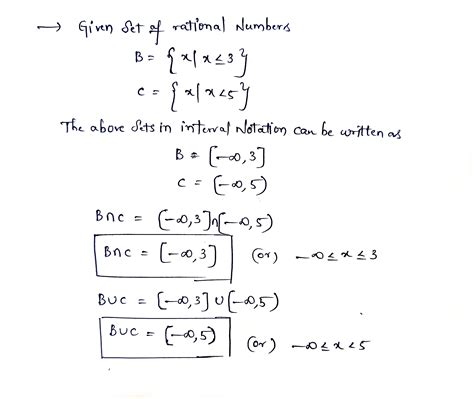 → Given Set of rational Numbers
B = { x | x ≤ 3 }
C = { x | x < 5 }
The above Sets in interval Notation can be written as
B = [-∞, 3]
C = [-∞, 5)
B∩C = [-∞, 3] ∩ [-∞, 5)
B∩C = [-∞, 3] (or) -∞ ≤ x ≤ 3
B∪C = [-∞, 3] ∪ [-∞, 5)
B∪C = [-∞, 5) (or) -∞ ≤ x < 5